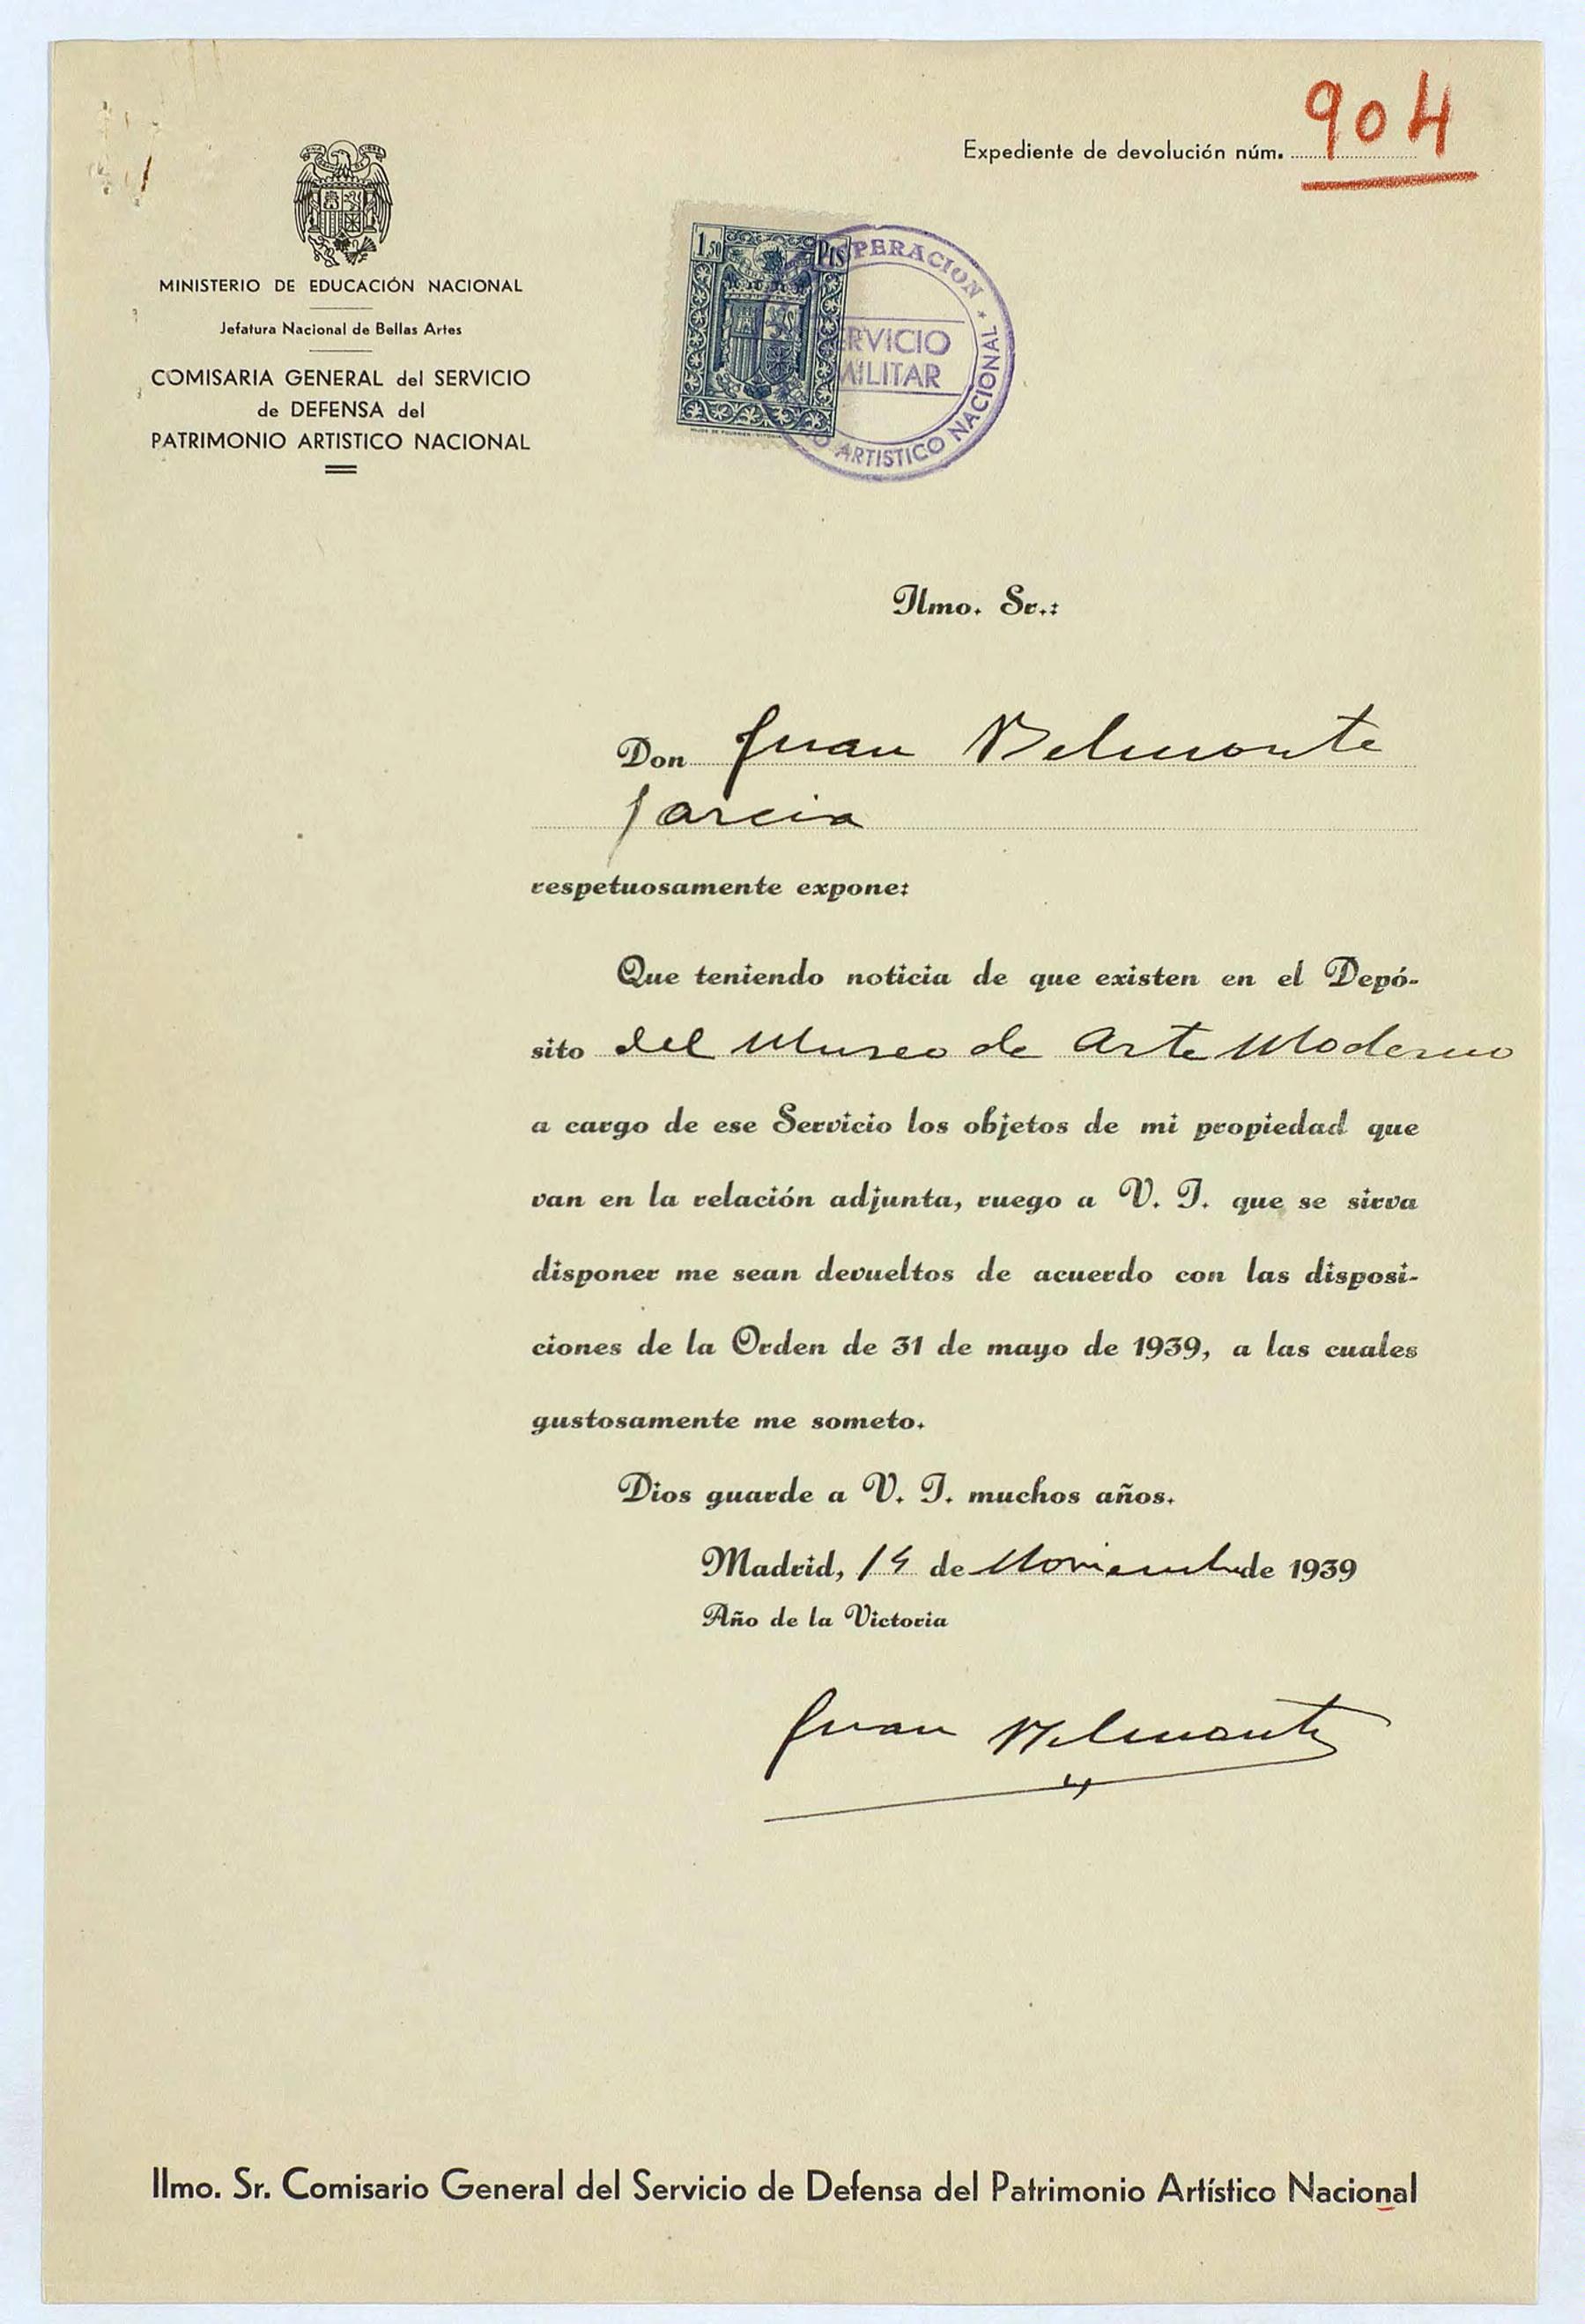 Expediente de devolución núm. 904
MINISTERIO DE EDUCACIÓN NACIONAL
Jefatura Nacional de Bellas Artes
COMISARIA GENERAL del SERVICIO
de DEFENSA del
PATRIMONIO ARTISTICO NACIONAL
1,50 Pts
PERACION * 
RVICIO
MILITAR
O ARTISTICO NACIONAL
Ilmo. Sr.:
Don Juan Belmonte
Garcia
respetuosamente expone:
Que teniendo noticia de que existen en el Depó-
sito del Museo de Arte Moderno
a cargo de ese Servicio los objetos de mi propiedad que
van en la relación adjunta, ruego a V. I. que se sirva
disponer me sean devueltos de acuerdo con las disposi-
ciones de la Orden de 31 de mayo de 1939, a las cuales
gustosamente me someto.
Dios guarde a V. I. muchos años.
Madrid, de Noviembre de 1939
Año de la Victoria
Juan Belmonte
Ilmo. Sr. Comisario General del Servicio de Defensa del Patrimonio Artístico Nacional